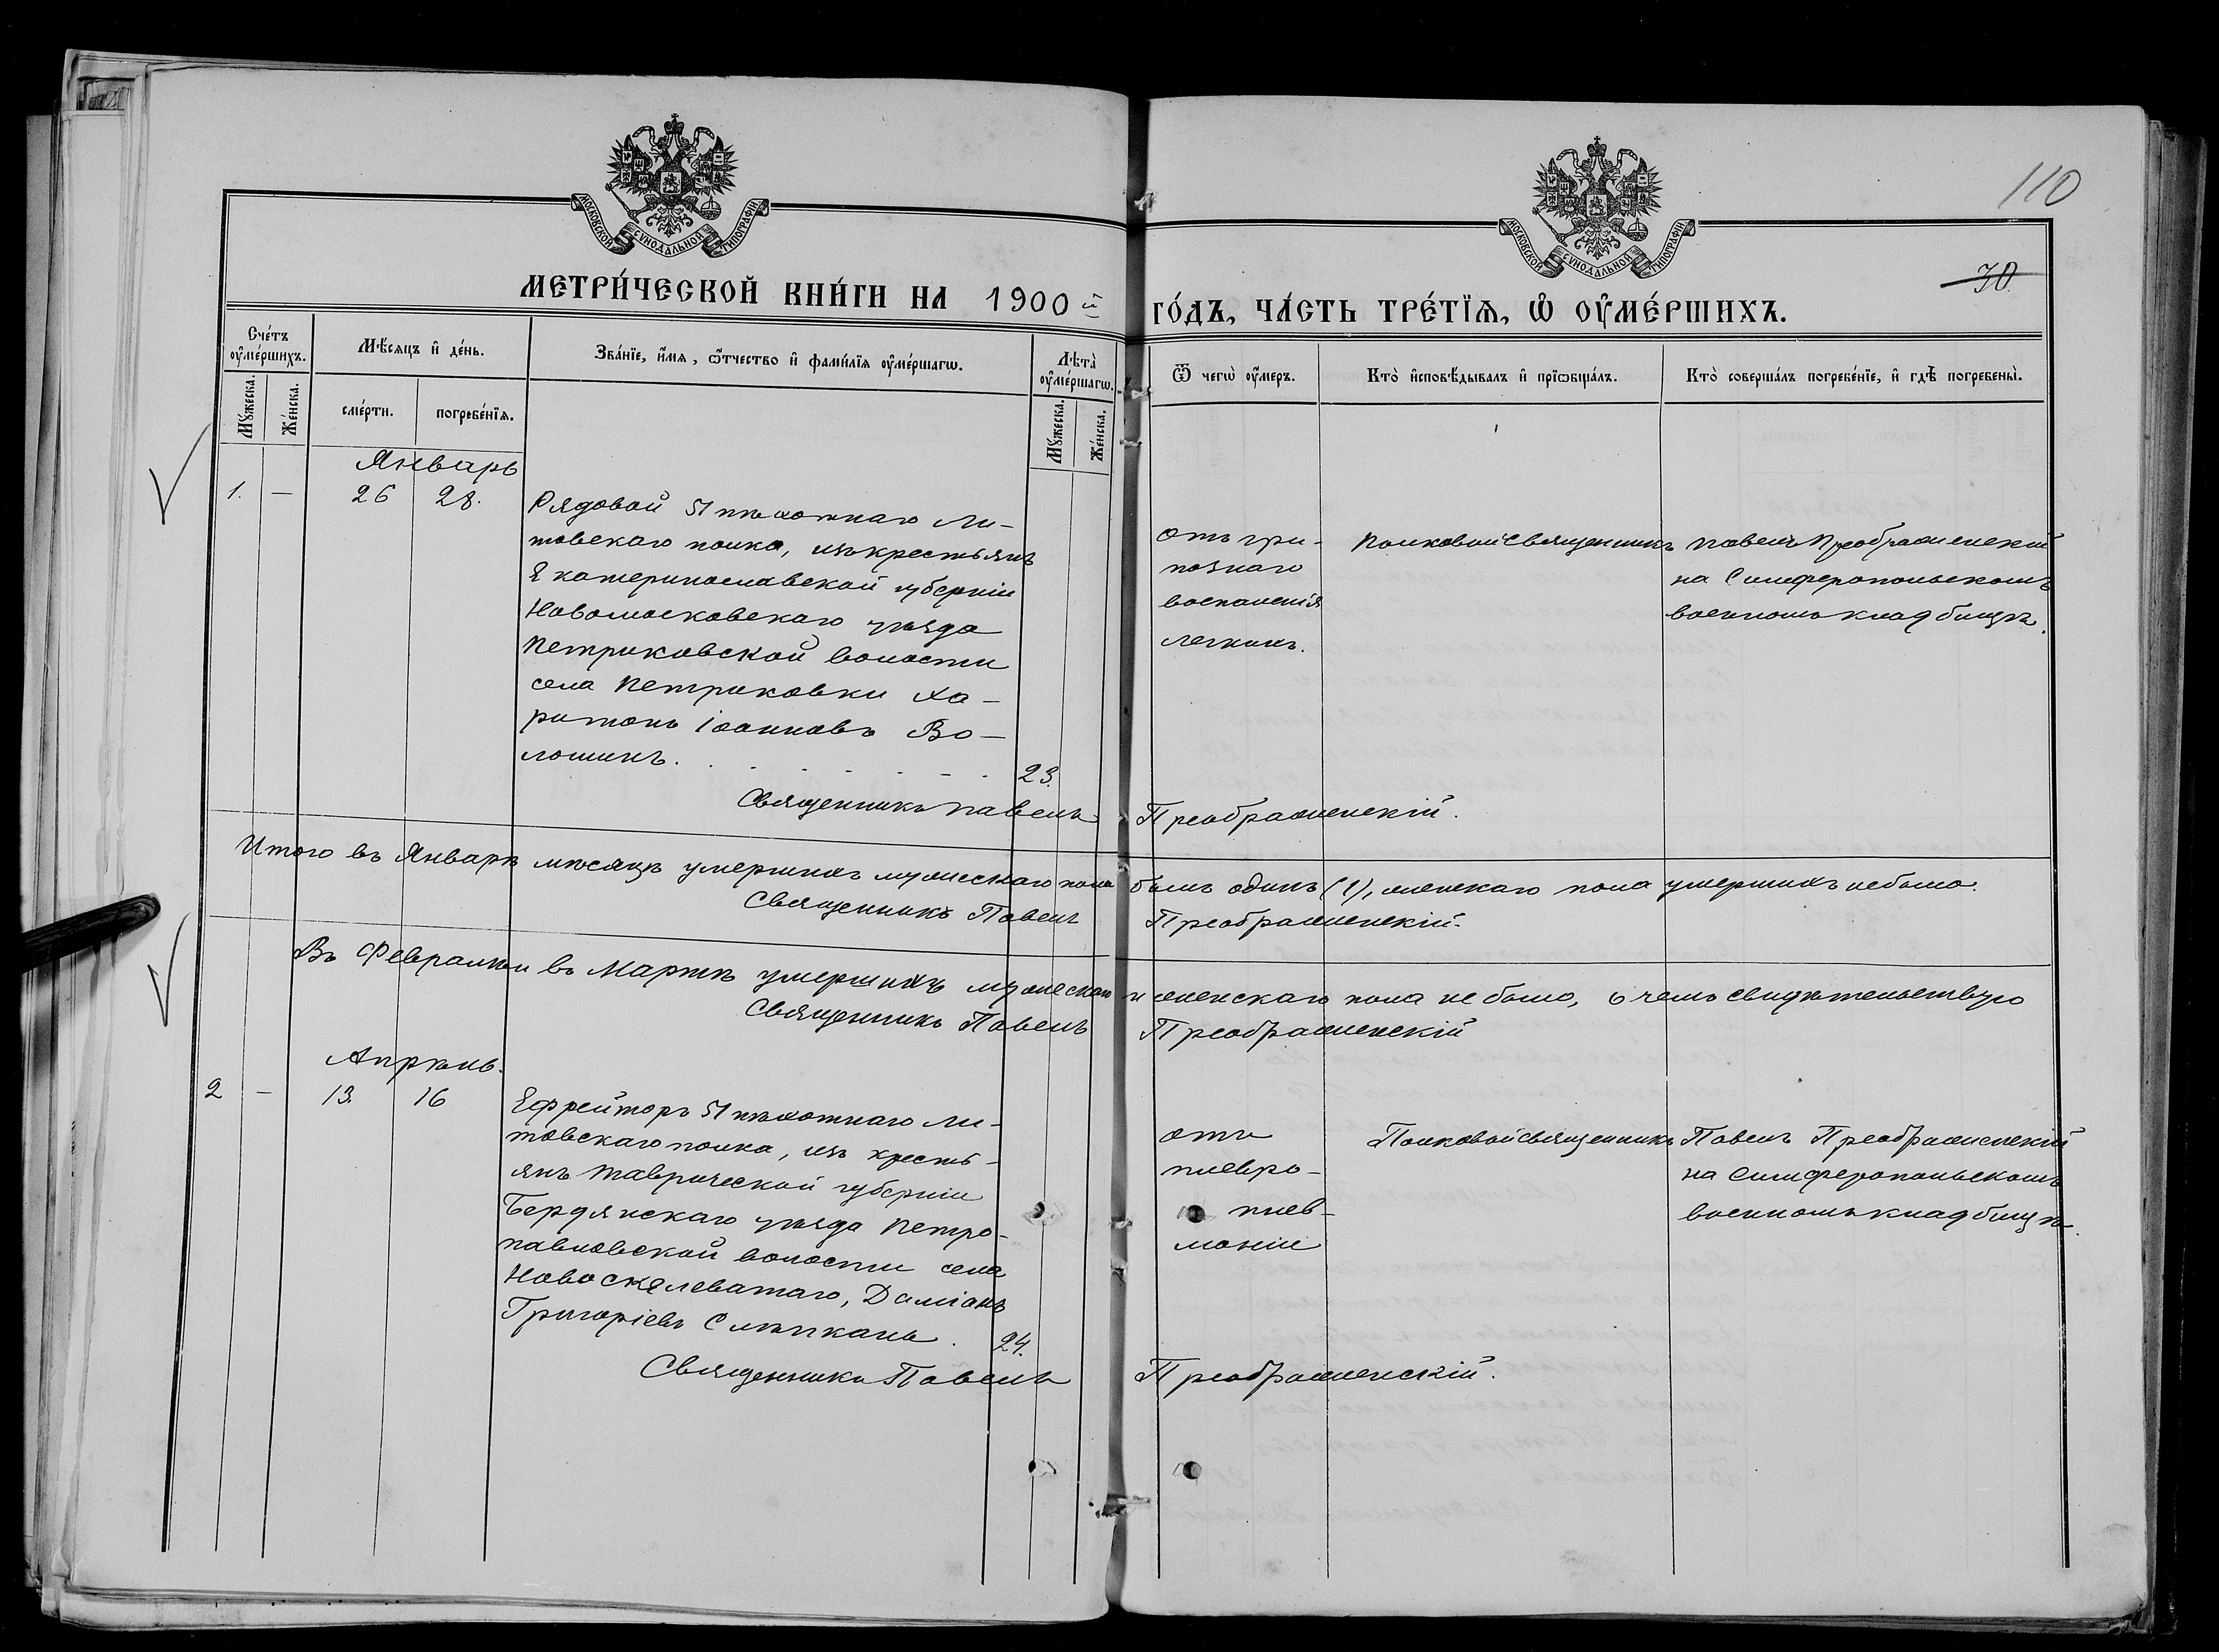 110
30
МОСКОВСКОЙ СѴНОДАЛЬНОЙ ТИПОГРАФІИ
МОСКОВСКОЙ СѴНОДАЛЬНОЙ ТИПОГРАФІИ
МЕТРИ́ЧЕСКОЙ КНИ́ГИ НА 1900й ГО́ДЪ, ЧА́СТЬ ТРЕ́ТЇѦ, Ѡ҆ ОУ҆МЕ́РШИХЪ.
Сче́тъ оу҆ме́ршихъ.
Му́жеска.
Же́нска.
Мѣ́сяцъ и҆ де́нь.
сме́рти.
погребе́нїѧ.
Зва́нїе, и҆́мѧ, ѻ҆́тчество и҆ фами́лїѧ оу҆ме́ршагѡ.
Лѣта̀ оу҆ме́ршагѡ.
Му́жеска.
Же́нска.
Ѿ чегѡ̀ оу҆́меръ.
Кто̀ и҆сповѣ́дывалъ и҆ прїѡбща́лъ.
Кто̀ соверша́лъ погребе́нїе, и҆ гдѣ̀ погребены̀.
Январь
1. — 26 28.
Рядовой 51 пѣхотнаго Ли-
товскаго полка, изъ крестьянъ
Екатеринославской губерніи
Новомосковскаго уѣзда
Петриковской волости
села Петриковки Ха-
ритонъ Іоанновъ Во-
лошинъ. 23.
отъ гри-
познаго
воспаленія
легкихъ.
Полковой священникъ Павелъ Преображенскій
на Симферопольскомъ
военномъ кладбищѣ.
Священникъ Павелъ Преображенскій.
Итого въ Январѣ мѣсяцѣ умершихъ мужескаго пола былъ одинъ (1), женскаго пола умершихъ не было.
Священникъ Павелъ Преображенскій.
Въ Февралѣ и въ Мартѣ умершихъ мужескаго и женскаго пола не было, о чемъ свидѣтельствую
Священникъ Павелъ Преображенскій
Апрѣль.
2 — 13. 16
Ефрейторъ 51 пѣхотнаго Ли-
товскаго полка, изъ кресть-
янъ Таврической губерніи
Бердянскаго уѣзда Петро-
павловской волости села
Новоскелеватаго, Даміанъ
Григоріевъ Слѣпкань. 24.
отъ
плевро-
пнев-
моніи
Полковой священникъ Павелъ Преображенскій
на Симферопольскомъ
военномъ кладбищѣ.
Священникъ Павелъ Преображенскій.